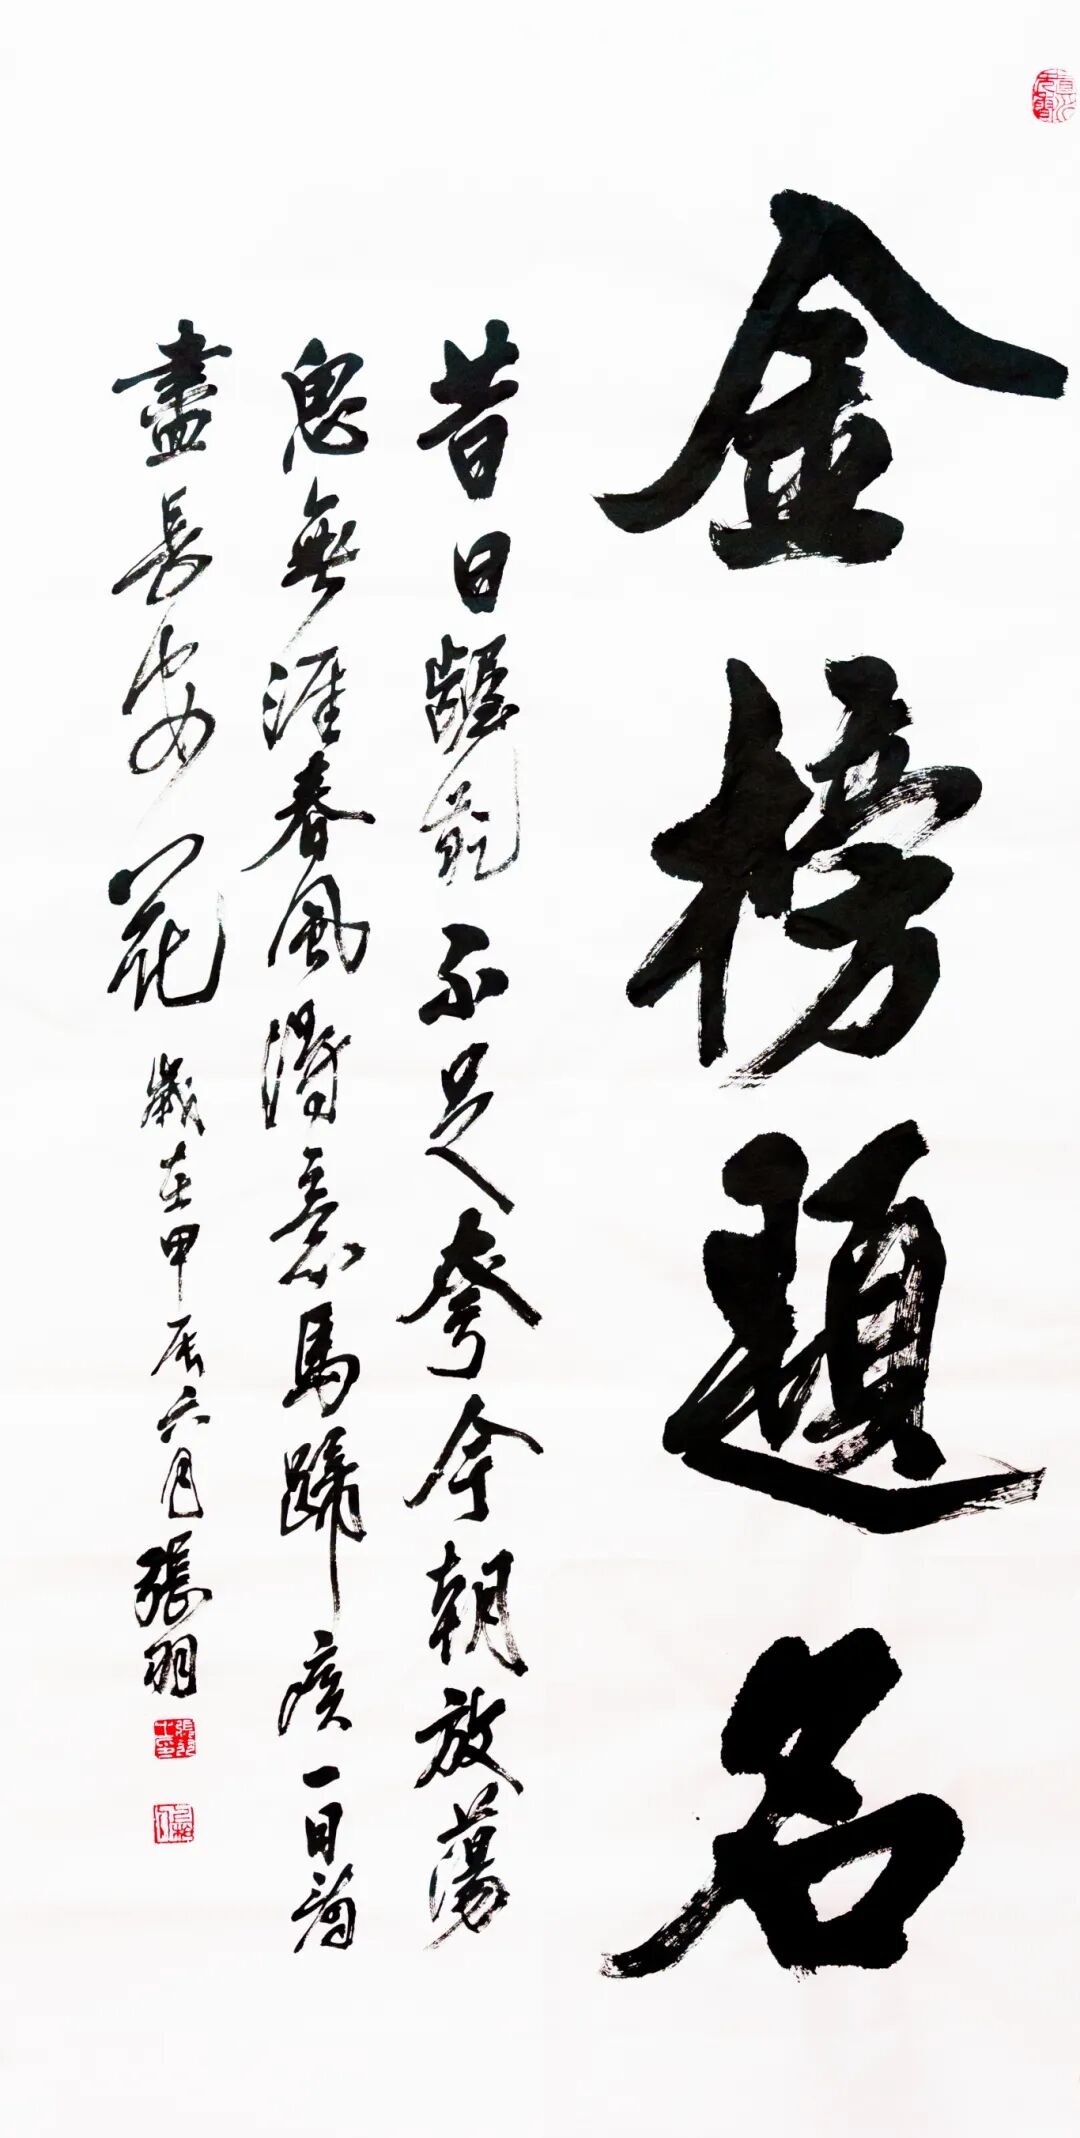 金榜題名
昔日龌龊不足夸今朝放蕩
思無涯春風得意馬蹄疾一日看
盡長安花 歲在甲辰六月張羽